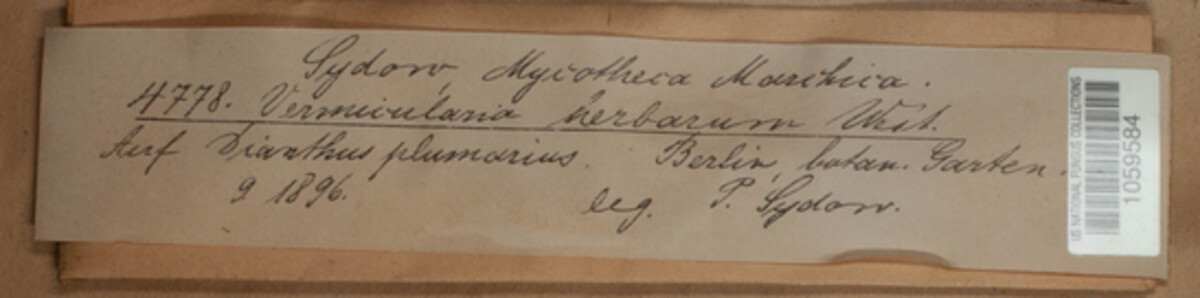 Sydow, Mycotheca Marchica.
4778. Vermicularia herbarum West.
Auf Dianthus plumarius. Berlin, botan. Garten.
9 1896. leg. P. Sydow.
US NATIONAL FUNGUS COLLECTIONS
1059584